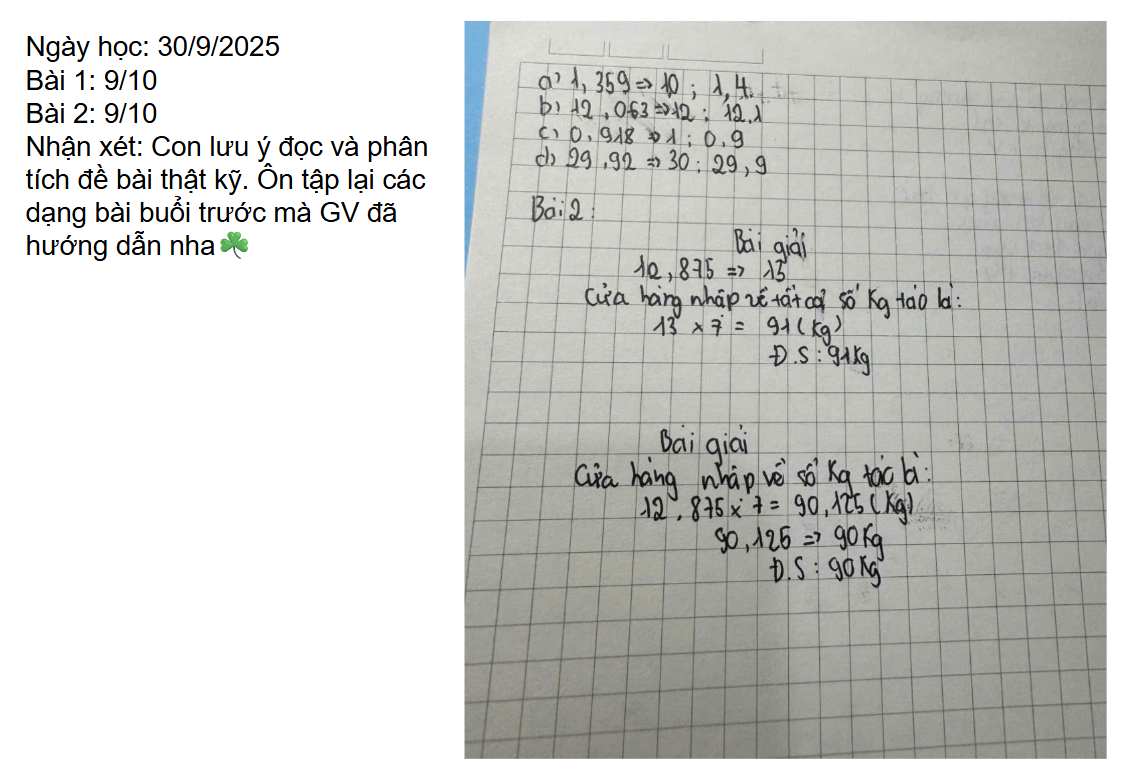 Ngày học: 30/9/2025
Bài 1: 9/10
Bài 2: 9/10
Nhận xét: Con lưu ý đọc và phân
tích đề bài thật kỹ. Ôn tập lại các
dạng bài buổi trước mà GV đã
hướng dẫn nha☘️
a) 1,359 => 10 ; 1,4
b) 12,063 => 12 ; 12,1
c) 0,918 => 1 ; 0,9
d) 29,92 => 30 ; 29,9
Bài 2:
Bài giải
12,875 => 13
Cửa hàng nhập về tất cả số kg táo là:
13 x 7 = 91 (kg)
Đ.S : 91kg
Bài giải
Cửa hàng nhập về số kg táo là:
12,875 x 7 = 90,125 (kg)
90,125 => 90kg
Đ.S : 90kg